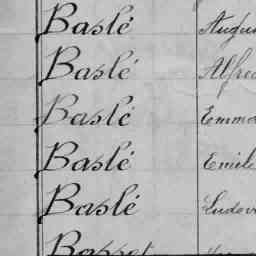 Baslé Augu
Baslé Alfre
Baslé Emma
Baslé Emile
Baslé Ludov
Basset